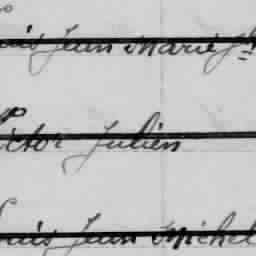 Louis Jean Marie
Victor Julien
Louis Jean Michel